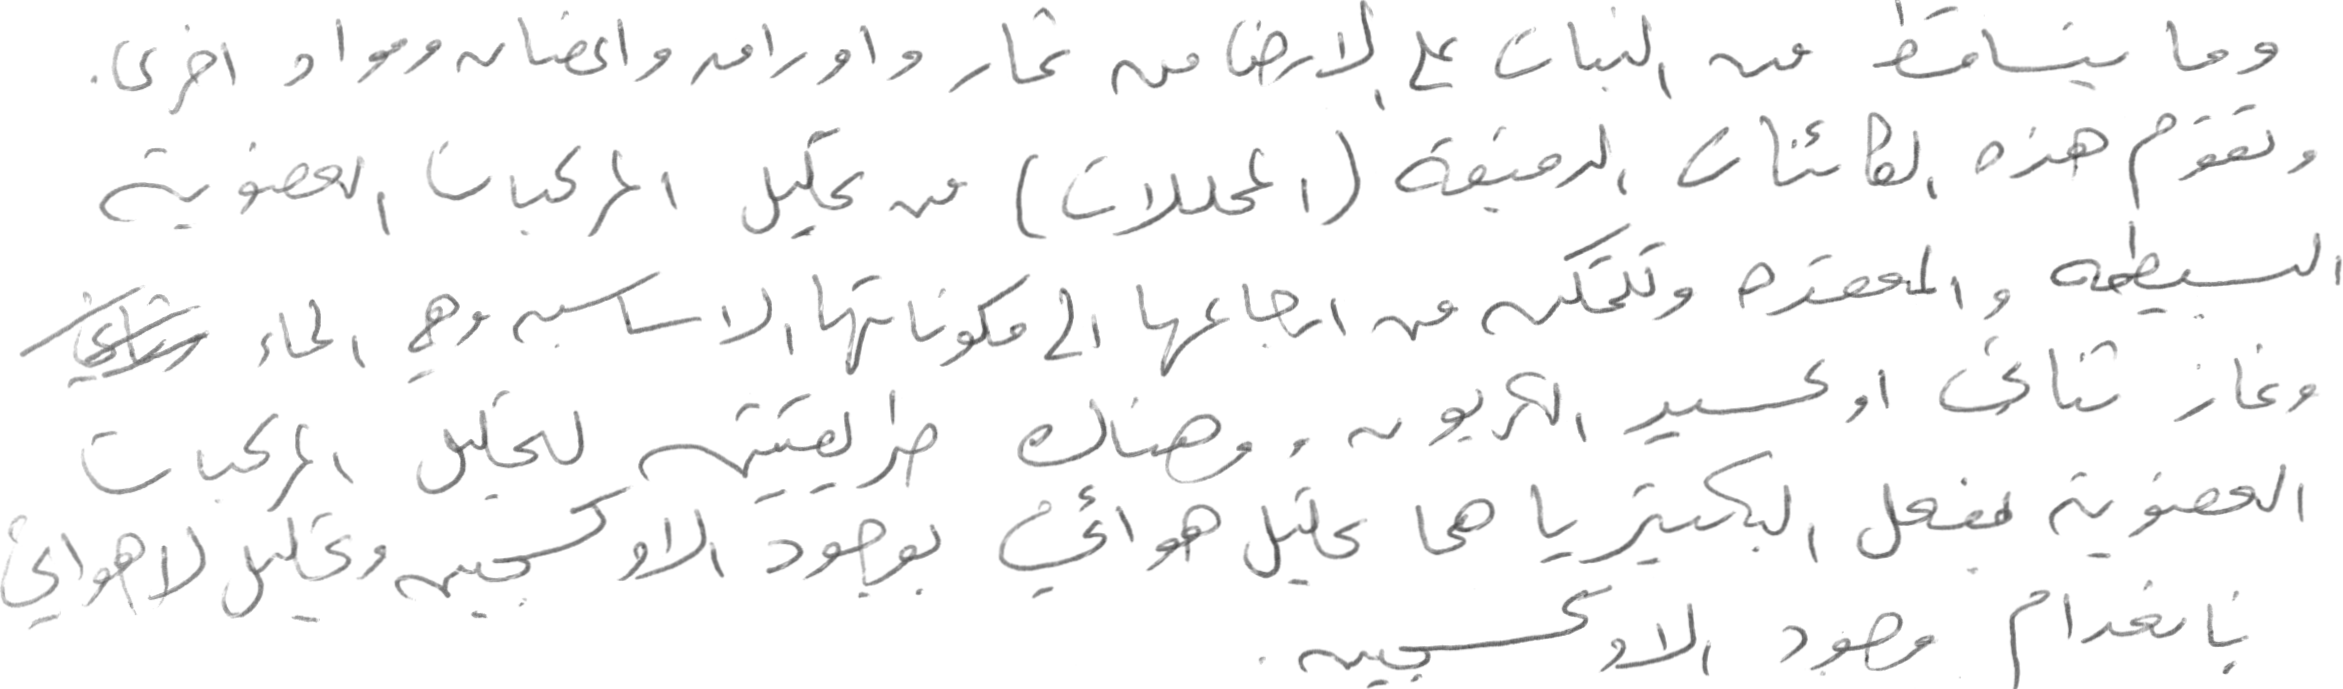 وما يتساقط من النبات على الارض من ثمار واوراق واغصان ومواد اخرى.
وتقوم هذه الكائنات الدقيقة (المحللات) من تحليل المركبات العضوية
البسيطه والمعقده وتتمكن من ارجاعها الى مكوناتها الاساسيه وهي الماء
وغاز ثنائي اوكسيد الكربون. وهناك طريقتين لتحليل المركبات
العضوية بفعل البكتيريا هما تحليل هوائي بوجود الاوكسجين وتحليل لاهوائي
بانعدام وجود الاوكسجين.